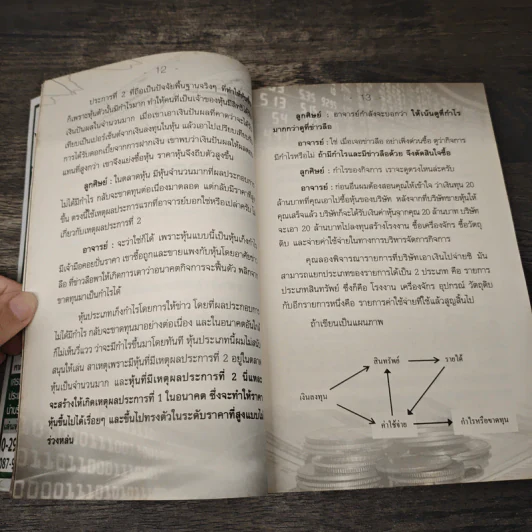 12
ประการที่ 2 ที่ถือเป็นปัจจัยพื้นฐานจริงๆ ที่ทำให้
ก็เพราะหุ้นตัวนั้นมีกำไรมาก ทำให้คนที่เป็นเจ้าของหุ้นมีสิทธิ
เงินปันผลในจำนวนมาก เมื่อเขาเอาเงินปันผลที่คาดว่าจะได้
เทียบเป็นเปอร์เซ็นต์จากเงินลงทุนในหุ้น แล้วเอาไปเปรียบเทียบ
การได้รับดอกเบี้ยจากการฝากเงิน เขาพบว่าเงินปันผลให้ผลตอบ
แทนที่สูงกว่า เขาจึงแย่งซื้อหุ้น ราคาหุ้นจึงถีบตัวสูงขึ้น
ลูกศิษย์ : ในตลาดหุ้น มีหุ้นจำนวนมากที่ผลประกอบการ
ไม่ได้มีกำไร กลับจะขาดทุนต่อเนื่องมาตลอด แต่กลับมีราคาที่สูง
ขึ้น ตรงนี้ใช่เหตุผลประการแรกที่อาจารย์บอกใช่หรือเปล่าครับ ไม่
เกี่ยวกับเหตุผลประการที่ 2
อาจารย์ : จะว่าใช่ก็ได้ เพราะหุ้นแบบนี้เป็นหุ้นเก็งกำไร
มีเจ้ามือคอยปั่นราคา เขาซื้อถูกและขายแพงกับหุ้นโดยอาศัยข่าว
ลือ ที่ข่าวลือพาให้เกิดการเดาว่าอนาคตกิจการจะฟื้นตัว พลิกจาก
ขาดทุนมาเป็นกำไรได้
หุ้นประเภทเก็งกำไรโดยการให้ข่าว โดยที่ผลประกอบการ
ไม่ได้มีกำไร กลับจะขาดทุนมาอย่างต่อเนื่อง และในอนาคตอันใกล้
ก็ไม่เห็นวี่แวว ว่าจะมีกำไรขึ้นมาโดยทันที หุ้นประเภทนี้ผมไม่
สนุนให้เล่น สาเหตุเพราะมีหุ้นที่มีเหตุผลประการที่ 2 อยู่ในตลาด
หุ้นเป็นจำนวนมาก และหุ้นที่มีเหตุผลประการที่ 2 นี่แหละ
จะสร้างให้เกิดเหตุผลประการที่ 1 ในอนาคต ซึ่งจะทำให้ราคา
หุ้นขึ้นไปได้เรื่อยๆ และขึ้นไปทรงตัวในระดับราคาที่สูงแบบไม่
ร่วงหล่น
13
ลูกศิษย์ : อาจารย์กำลังจะบอกว่า ให้เน้นดูที่กำไร
มากกว่าดูที่ข่าวลือ
อาจารย์ : ใช่ เมื่อเจอข่าวลือ อย่าเพิ่งด่วนซื้อ ดูว่ากิจการ
มีกำไรหรือไม่ ถ้ามีกำไรและมีข่าวลือด้วย จึงตัดสินใจซื้อ
ลูกศิษย์ : กำไรของกิจการ เราจะดูตรงไหนล่ะครับ
อาจารย์ : ก่อนอื่นผมต้องสอนคุณให้เข้าใจ ว่าเงินทุน 20
ล้านบาทที่คุณเอาไปซื้อหุ้นของบริษัท หลังจากที่บริษัทขายหุ้นให้
คุณเสร็จแล้ว บริษัทก็จะได้รับเงินค่าหุ้นจากคุณ 20 ล้านบาท บริษัท
จะเอา 20 ล้านบาทไปลงทุนสร้างโรงงาน ซื้อเครื่องจักร ซื้อวัตถุ
ดิบ และจ่ายค่าใช้จ่ายในทางการบริหารจัดการกิจการ
คุณลองพิจารณารายการที่บริษัทเอาเงินไปจ่ายซิ มัน
สามารถแยกประเภทของรายการได้เป็น 2 ประเภท คือ รายการ
ประเภทสินทรัพย์ ซึ่งก็คือ โรงงาน เครื่องจักร อุปกรณ์ วัตถุดิบ
กับอีกรายการหนึ่งคือ รายการค่าใช้จ่ายที่ใช้แล้วสูญสิ้นไป
ถ้าเขียนเป็นแผนภาพ
สินทรัพย์
รายได้
เงินลงทุน
ค่าใช้จ่าย
กำไรหรือขาดทุน